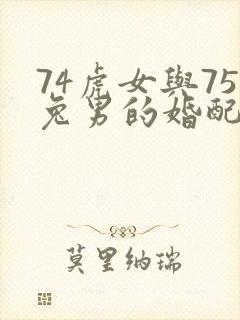 74虎女與75
兔男的婚配
莫里纳瑞